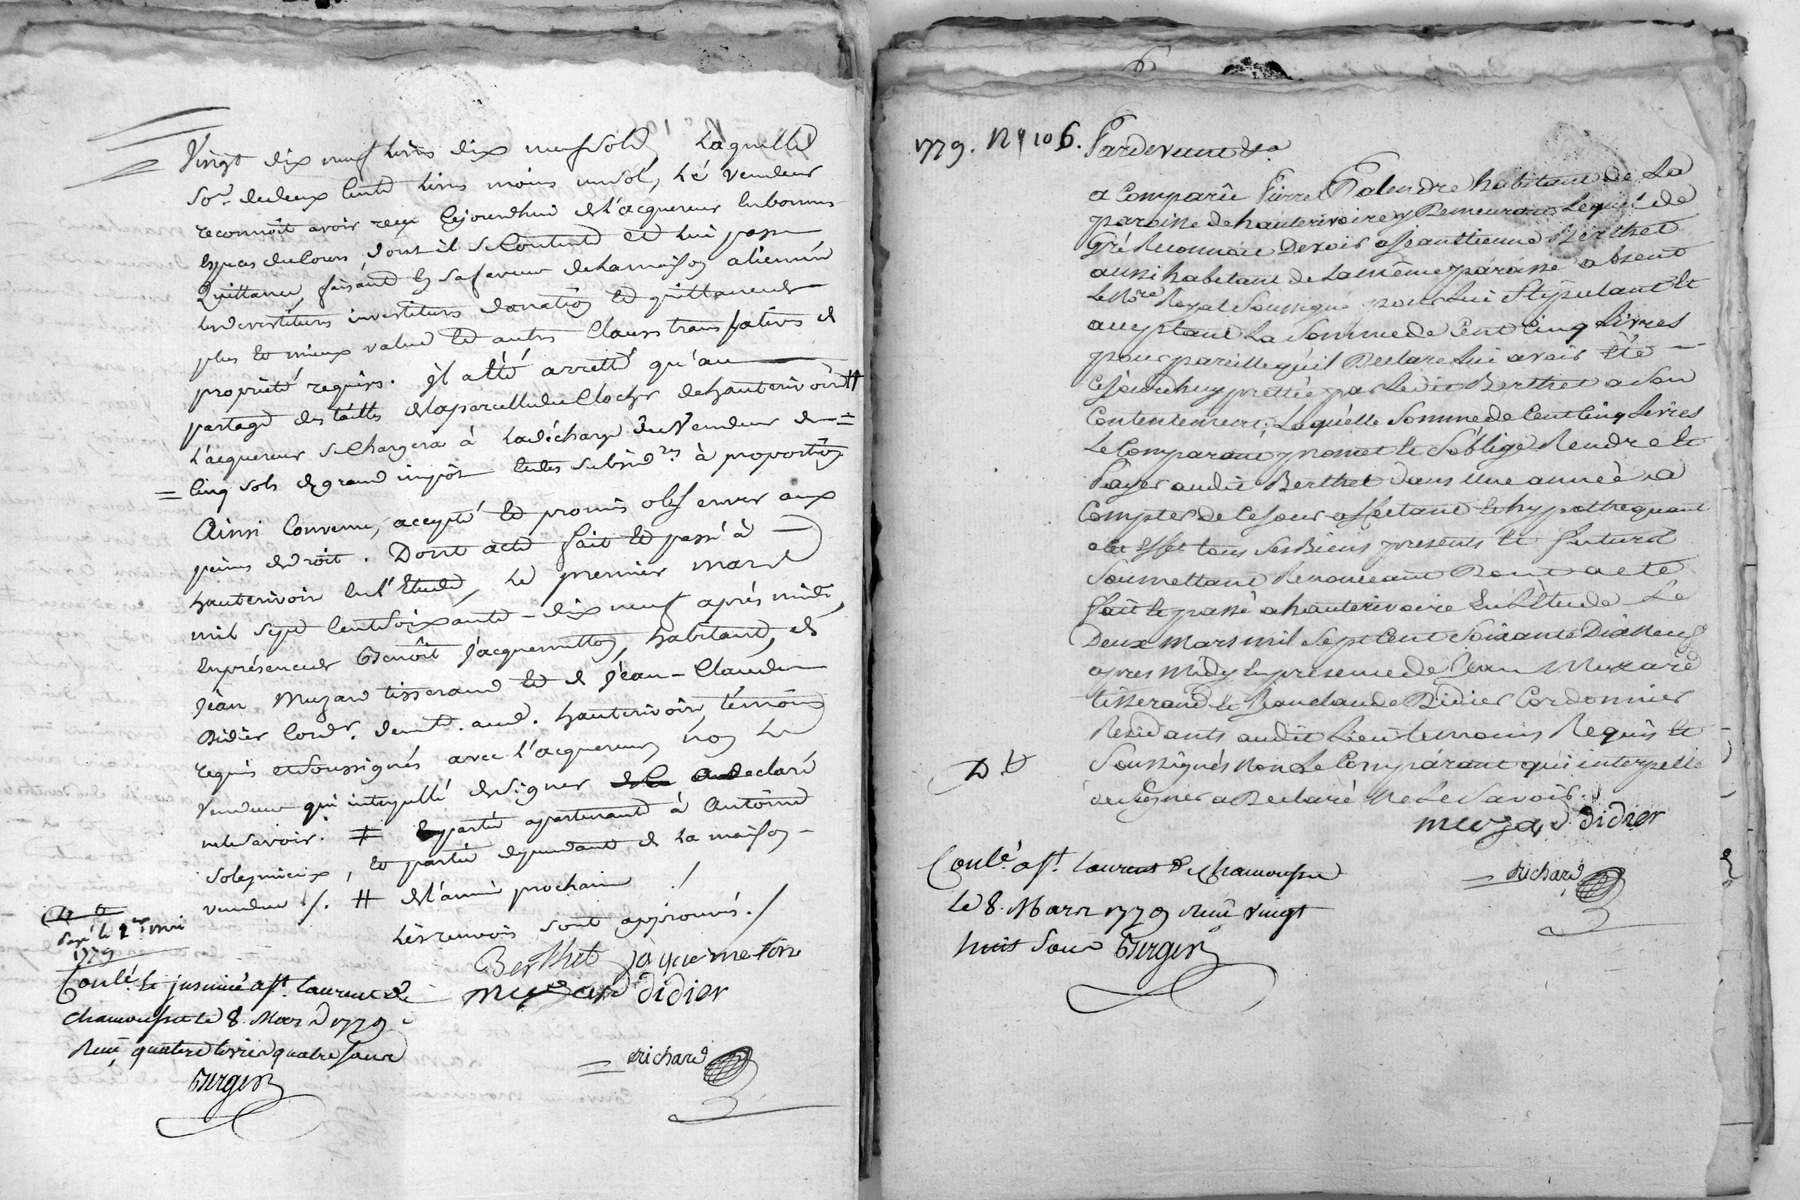 Vingt dix neuf livres dix neuf sols, Laquelle
So.e de deux Cents Livres moins un sol, Lé Vendeur
reconnoît avoir reçu cejourdhui de l'acquereur en bonnes
Espèces du Cours, dont il se Contente et lui passe
Quittance, faisant en sa faveur de la maison aliénée
les devestitures investitures donation et quittance de
plus et mieux value et autres Clauses translatives de
propriété requises. Il a été arretté qu'au
partage des tailles de la parcelle du Clocher de hauterivoire #
L'acquereur se Chargera à la décharge du Vendeur de =
= Cinq sols de grand impôt et les subsid.res à proportion
Ainsi Convenu, accepté et promis observer aux
peines de droit. Dont acte fait et passé à
hauterivoir en l'Etude, Le premier mars
mil sept Cent soixante-dix neuf après midi,
En présence de Benoît Jacquemetton, habitant, de
Jean Muzard tisserand et de Jean-Claude
Didier Cord.r demt. aud. hauterivoir, témoins
requis et soussignés avec L'acquereur non Le
Vendeur qui interpellé de signer a declaré
ne le savoir. # partie apartenant à Antoine
Solesmieux, et partie dépendante de La maison
vendue ./. # de l'année prochaine ./
Les renvois sont approuvés. /
Exp.é le 2.e mai
1779
Berthet jaquemeton
Muzard didier
Conlé. et insinué à St. Laurent De
Chamousset Le 8. Mars 1779
Reçu quatre livres quatre sous
Burgin
Richard
1779. N.º 106. Pardevant &.a
a Comparû Pierre Palendre habitant de La
paroisse de hauterivoire y Demeurant Lequel de
Gré Reconnoit Devoir a Jean Etienne Berthet
aussi habitant de La même paroisse absent
Le No.re Royal Soussigné pour Lui Stipulant Et
acceptant La Somme de Cent Cinq Livres
pour pareille qu'il Declare Lui avoir Eté
Cejourdhuy prettée par Ledit Berthet a Son
Contentement, Laquelle Somme de Cent Cinq Livres
Le Comparant promet et S'oblige Rendre et
Payer audit Berthet dans Une année a
Compter de Ce jour affectant et hypothequant
a Cet Effet tous Ses Biens presents Et futurs
Soumettant Renonceant Dont acte
fait et passé a hauterivoire En L'Etude Le
Deux Mars mil Sept Cent Soixante Dix Neuf
apres Midy En presence de Jean Muzard
tisserand et Jean Claude Didier Cordonnier
Residants audit Lieu temoins Requis et
Soussignés Non Le Comparant qui interpellé
de Signer a Declaré Ne Le Savoir.
Muzard didier
Conlé. a St. Laurent De Chamousset
Le 8. Mars 1779 Reçu Vingt
huit Sous Burgin
Richard